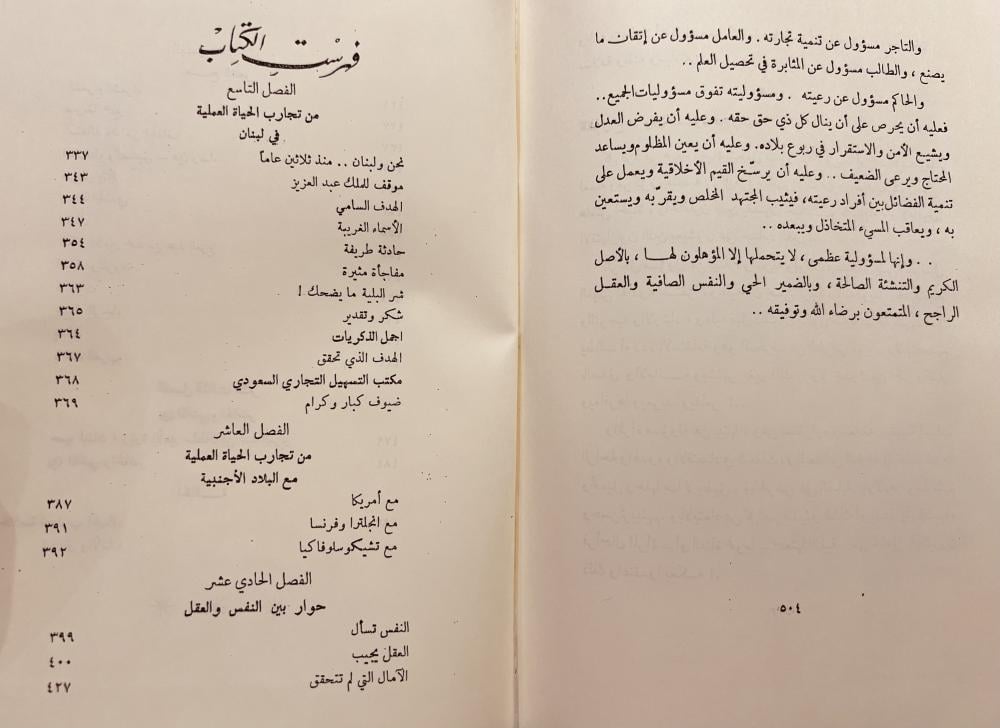 والتاجر مسؤول عن تنمية تجارته . والعامل مسؤول عن إتقان ما
يصنع ، والطالب مسؤول عن المثابرة في تحصيل العلم ..
والحاكم مسؤول عن رعيته . ومسؤوليته تفوق مسؤوليات الجميع ..
فعليه أن يحرص على أن ينال كل ذي حق حقه . وعليه أن يفرض العدل
ويشيع الأمن والاستقرار في ربوع بلاده. وعليه أن يعين المظلوم ويساعد
المحتاج ويرعى الضعيف .. وعليه أن يرسّخ القيم الأخلاقية ويعمل على
تنمية الفضائل بين أفراد رعيته، فيثيب المجتهد المخلص ويقرّ به ويستعين
به ، ويعاقب المسيء المتخاذل ويبعده ..
. . وإنها لمسؤولية عظمى ، لا يتحملها إلا المؤهلون لهـا ، بالأصل
الكريم والتنشئة الصالحة ، وبالضمير الحي والنفس الصافية والعقـل
الراجح ، المتمتعون برضاء الله وتوفيقه ..
٥٠٤
فهرست الكتاب
الفصل التاسع
من تجارب الحياة العملية
في لبنان
نحن ولبنان .. منذ ثلاثين عاماً ٣٣٧
موقف للملك عبد العزيز ٣٤٣
الهدف السامي ٣٤٤
الأسماء الغريبة ٣٤٧
حادثة طريفة ٣٥٤
مفاجأة مثيرة ٣٥٨
شر البلية ما يضحك ! ٣٦٣
شكر وتقدير ٣٦٥
اجمل الذكريات ٣٦٤
الهدف الذي تحقق ٣٦٧
مكتب التسهيل التجاري السعودي ٣٦٨
ضيوف كبار وكرام ٣٦٩
الفصل العاشر
من تجارب الحياة العملية
مع البلاد الأجنبية
مع أمريكا ٣٨٧
مع انجلترا وفرنسا ٣٩١
مع تشيكوسلوفاكيا ٣٩٢
الفصل الحادي عشر
حوار بين النفس والعقل
النفس تسأل ٣٩٩
العقل يجيب ٤٠٠
الآمال التي لم تتحقق ٤٢٧